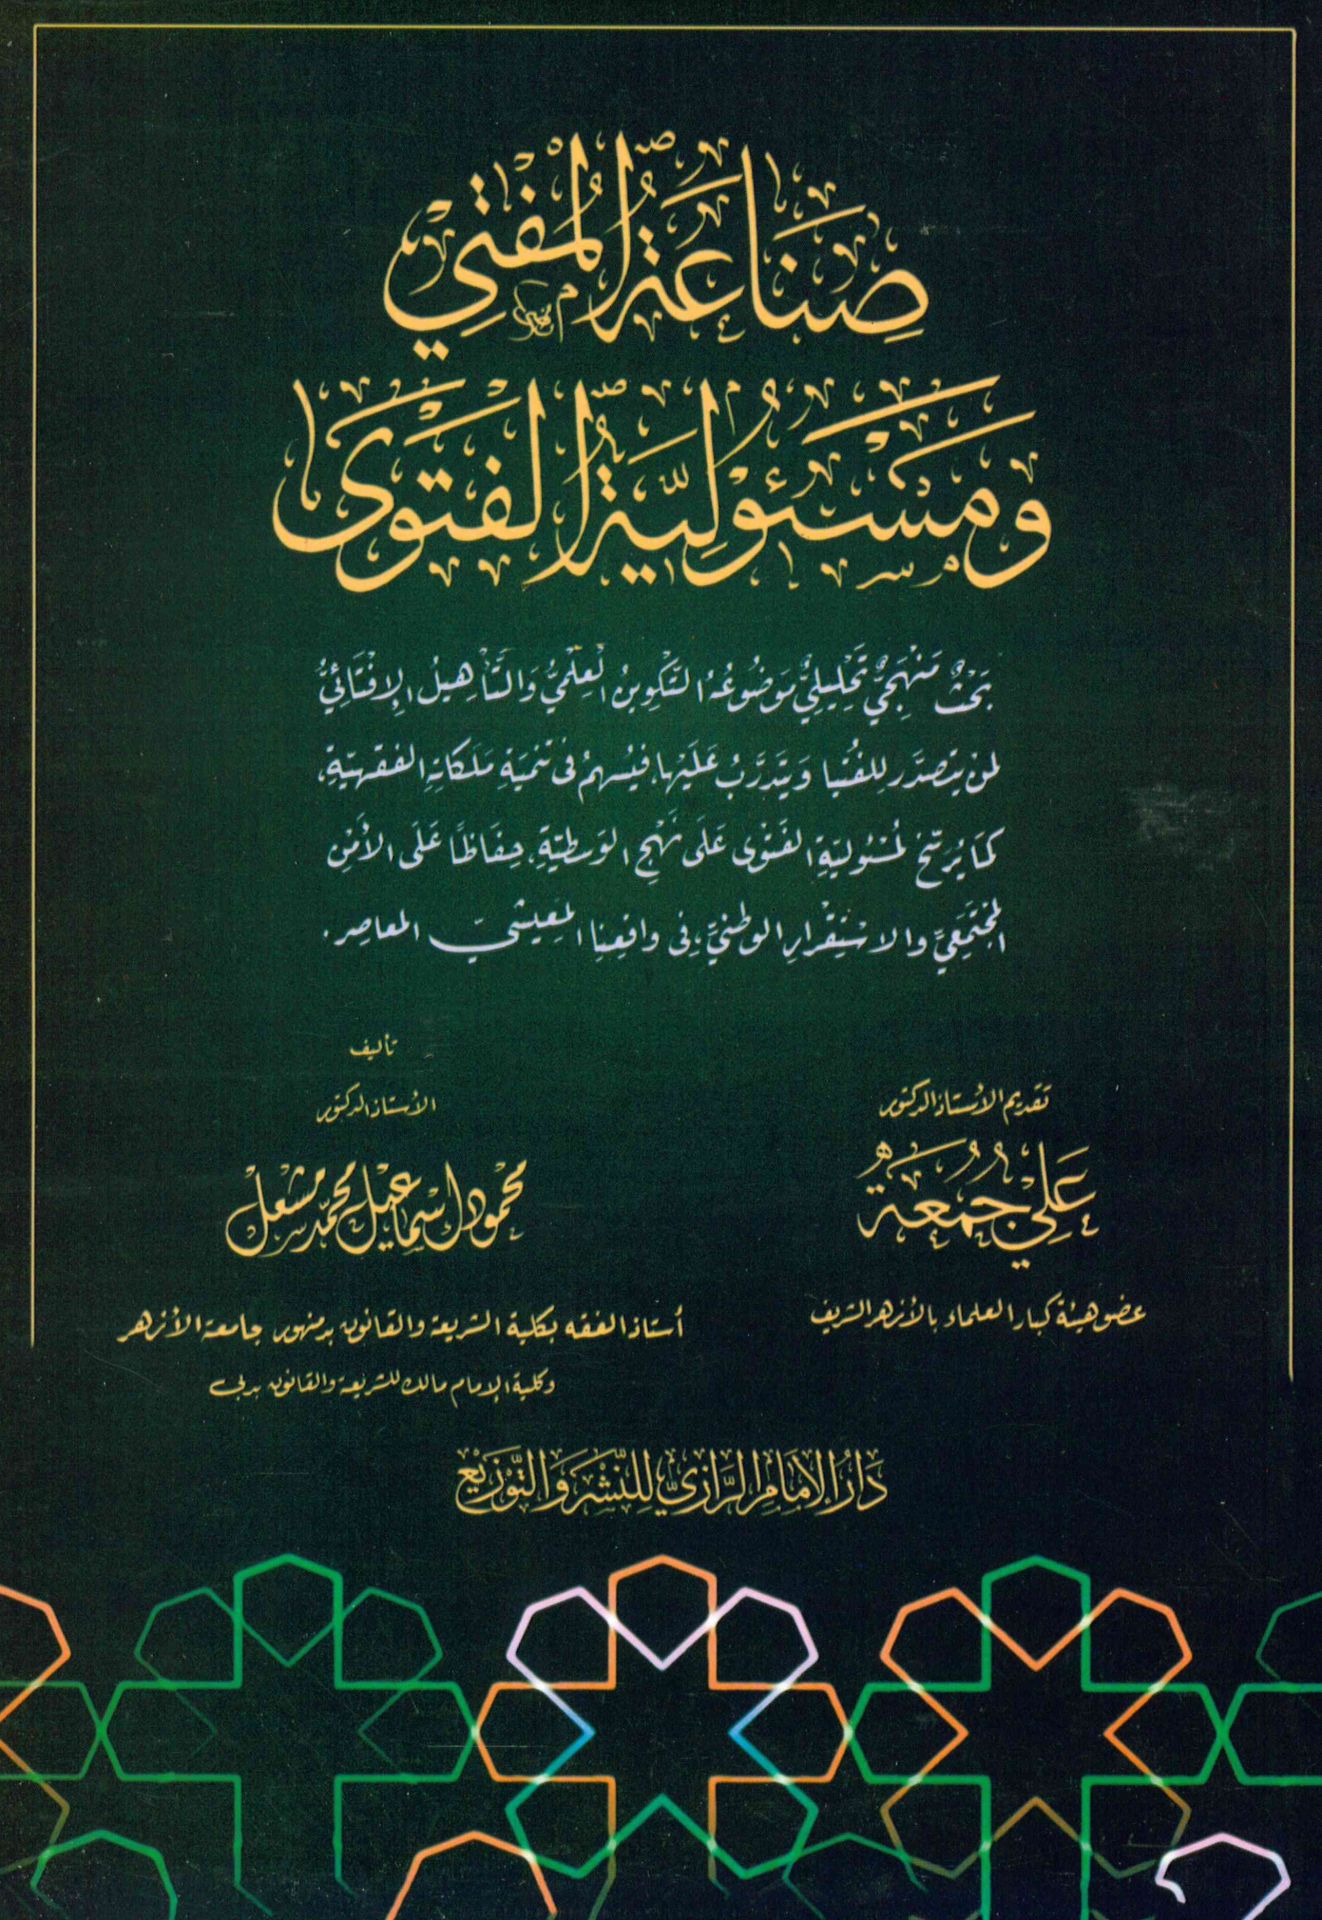 صِنَاعَةُ الْمُفْتِي
وَمَسْئُولِيَّةُ الْفَتْوَى
بَحْثٌ مَنْهَجِيٌّ تَحْلِيلِيٌّ مَوْضُوعُهُ التَّكْوِينُ الْعِلْمِيُّ وَالتَّأْهِيلُ الْإِفْتَائِيُّ
لِمَنْ يَتَصَدَّر لِلْفُتْيَا وَيَتَدَرَّبُ عَلَيْهَا، فَيُسْهِمُ فِي تَنْمِيَةِ مَلَكَاتِهِ الْفِقْهِيَّةِ،
كَمَا يُرَشِّحُ لِمَسْئُولِيَّةِ الْفَتْوَى عَلَى نَهْجِ الْوَسَطِيَّةِ، حِفَاظًا عَلَى الْأَمْنِ
الْمُجْتَمَعِيِّ وَالِاسْتِقْرَارِ الْوَطَنِيِّ، فِي وَاقِعِنَا الْمَعِيشِيِّ الْمُعَاصِرِ.
تقديم الأستاذ الدكتور
عَلِي جُمُعَة
عضو هيئة كبار العلماء بالأزهر الشريف
تأليف
الأستاذ الدكتور
محمود إسماعيل محمد مشعل
أستاذ الفقه بكلية الشريعة والقانون بدمنهور جامعة الأزهر
وكلية الإمام مالك للشريعة والقانون بدبي
دَارُ الْإِمَامِ الرَّازِيِّ لِلنَّشْرِ وَالتَّوْزِيعِ